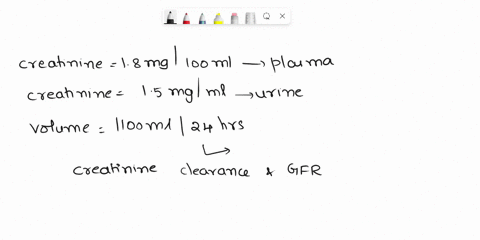 creatinine = 1.8 mg | 100 ml → plasma
creatinine = 1.5 mg | ml → urine
volume = 1100 ml | 24 hrs
creatinine clearance & GFR